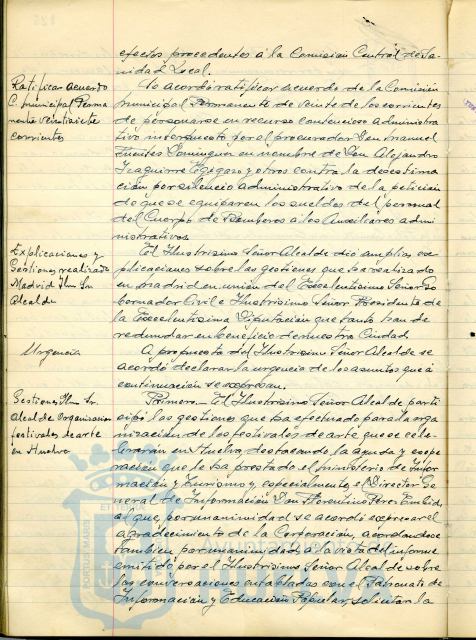 efectos procedentes á la Comisión Central de Sa-
nidad Local.
Ratificar acuerdo
C. municipal Perma
nente veintisiete
corrientes
Se acordó ratificar acuerdo de la Comisión
municipal Permanente de veinte de los corrientes
de personarse en recurso contencioso administra
tivo interpuesto por el procurador Don Manuel
Fuentes Dominguez en nombre de Don Alejandro
Izaguirre y otros contra la desestima
ción por silencio administrativo de la petición
de que se equiparen los sueldos del personal
del Cuerpo de Bomberos a los Auxiliares admi
nistrativos.
Explicaciones y
Gestiones realizado
Madrid Ilm Sr
Alcalde
El Ilustrísimo Señor Alcalde dió amplias ex
plicaciones sobre las gestiones que ha realizado
en Madrid en unión del Excelentísimo Señor Go
bernador Civil e Ilustrísimo Señor Presidente de
la Excelentísima Diputación que tanto han de
redundar en beneficio de nuestra Ciudad.
Urgencia
A propuesta del Ilustrísimo Señor Alcalde se
acordó declarar la urgencia de los asuntos que á
continuación se expresan.
Gestiones Ilm. Sr.
Alcalde Organizacion
festivales de arte
en Huelva
Primero.- El Ilustrísimo Señor Alcalde parti
cipó las gestiones que ha efectuado para la orga
nización de los festivales de arte que se cele-
brarán en Huelva destacando la ayuda y coope
ración que le ha prestado el Ministerio de Infor
mación y Turismo y especialmente, el Director Ge
neral de Información Don Florentino Pérez Embid,
al que, por unanimidad se acordó expresar el
agradecimiento de la Corporación, acordandose
tambien por unanimidad, a la vista del informe
emitido por el Ilustrísimo Señor Alcalde sobre
las conversaciones entabladas con el Patronato de
Información y Educación Popular, solicitar la